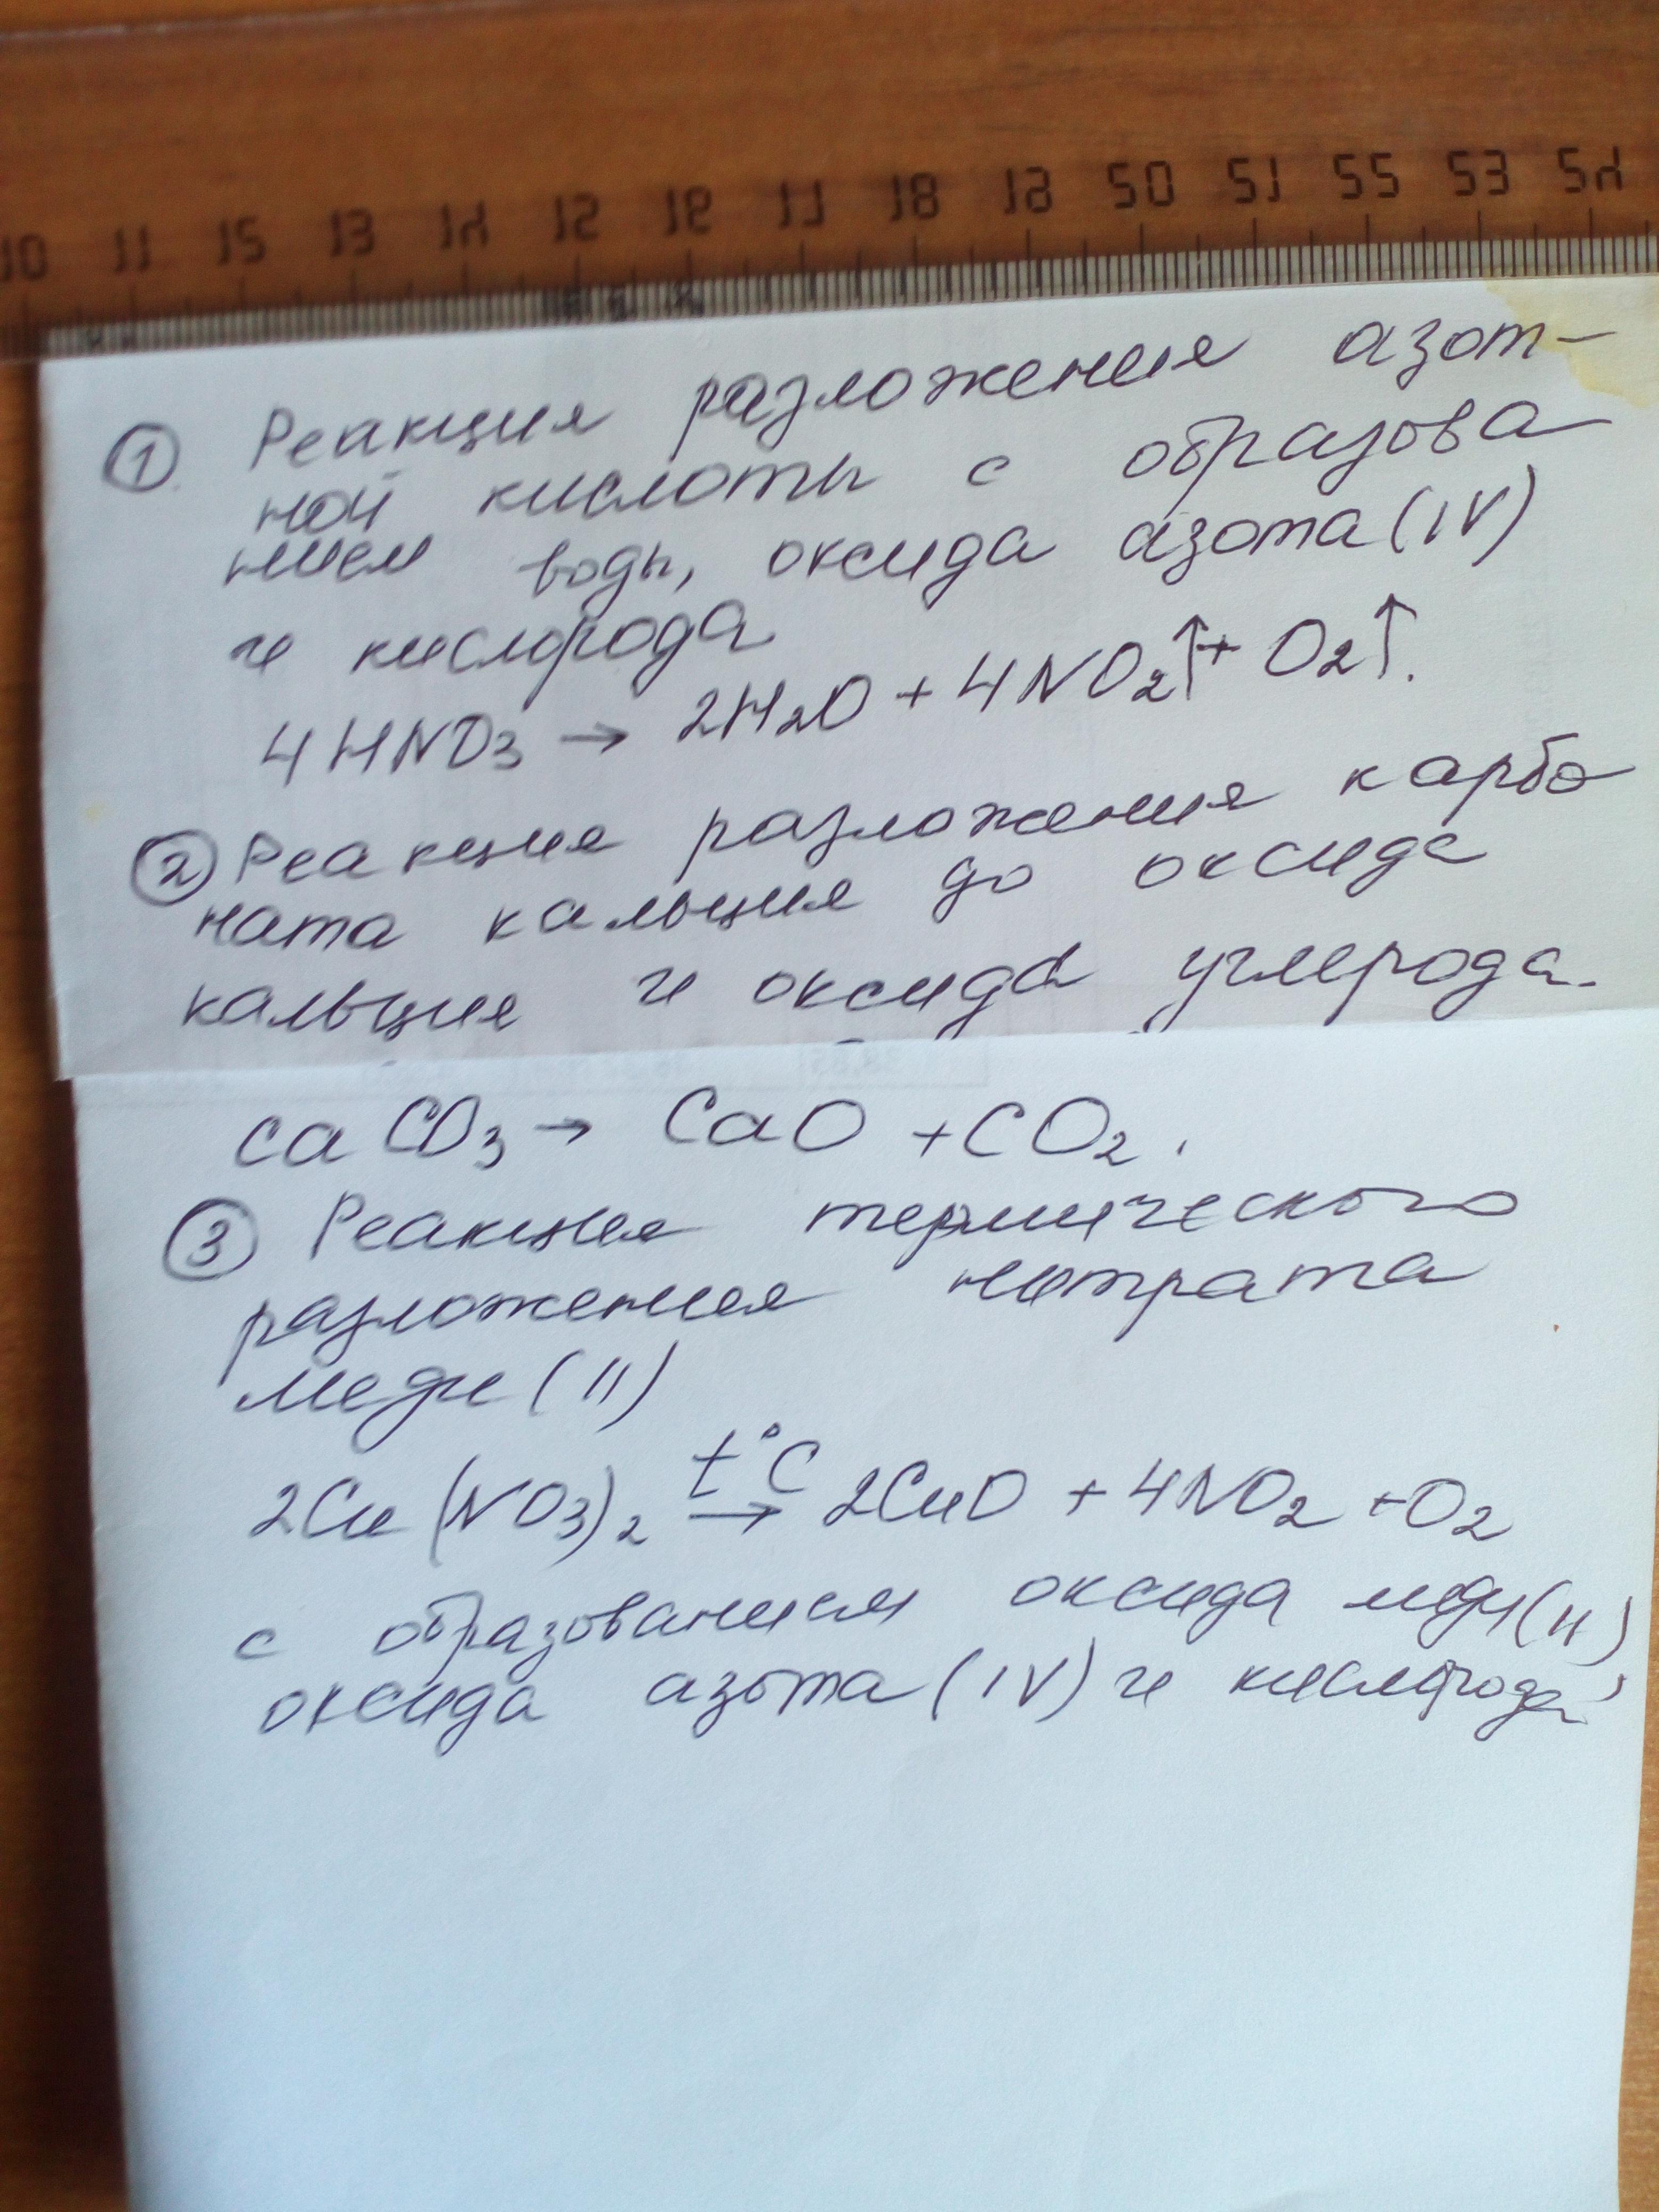 10 11 12 13 14 15 16 17 18 19 20 21 22 23 24
① Реакция разложения азот-
ной кислоты с образова
нием воды, оксида азота (IV)
и кислорода
4HNO3 → 2H2O + 4NO2↑ + O2↑.
② Реакция разложения карбо
ната кальция до оксида
кальция и оксида углерода.
CaCO3 → CaO + CO2.
③ Реакция термического
разложения нитрата
меди (II)
2Cu(NO3)2 t°C → 2CuO + 4NO2 + O2
с образованием оксида меди (II),
оксида азота (IV) и кислорода